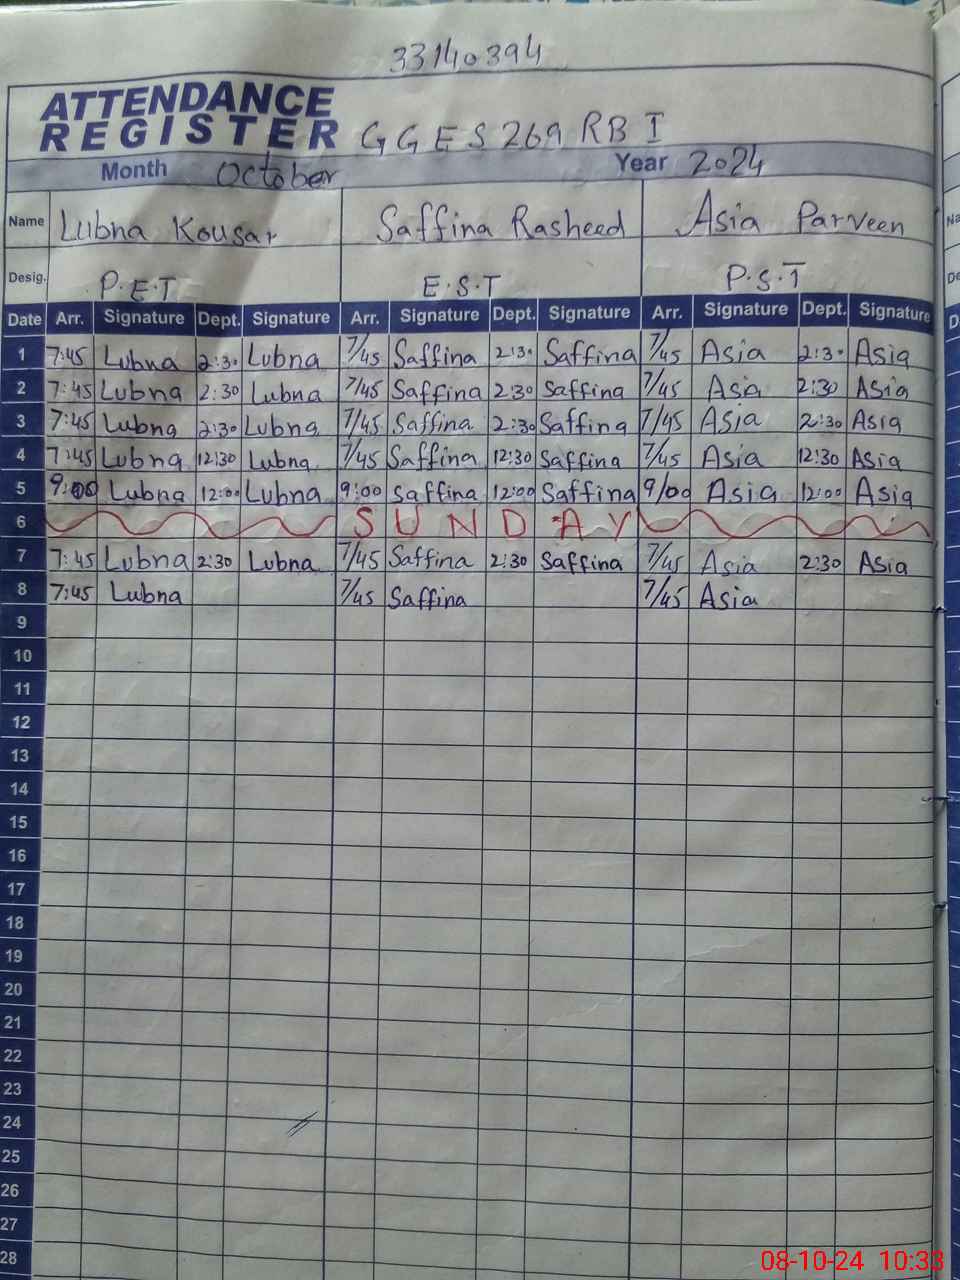 33140394
ATTENDANCE
REGISTER GGES 269 RB I
Month October Year 2024
Name Lubna Kousar Saffina Rasheed Asia Parveen
Desig. P.E.T E.S.T P.S.T
Date Arr. Signature Dept. Signature Arr. Signature Dept. Signature Arr. Signature Dept. Signature
1 7:45 Lubna 2:30 Lubna 7/45 Saffina 2:30 Saffina 7/45 Asia 2:30 Asia
2 7:45 Lubna 2:30 Lubna 7/45 Saffina 2:30 Saffina 7/45 Asia 2:30 Asia
3 7:45 Lubna 2:30 Lubna 7/45 Saffina 2:30 Saffina 7/45 Asia 2:30 Asia
4 7:45 Lubna 12:30 Lubna 7/45 Saffina 12:30 Saffina 7/45 Asia 12:30 Asia
5 9:00 Lubna 12:00 Lubna 9:00 Saffina 12:00 Saffina 9/00 Asia 12:00 Asia
6 SUNDAY
7 7:45 Lubna 2:30 Lubna 7/45 Saffina 2:30 Saffina 7/45 Asia 2:30 Asia
8 7:45 Lubna 7/45 Saffina 7/45 Asia
9
10
11
12
13
14
15
16
17
18
19
20
21
22
23
24
25
26
27
28
08-10-24 10:33